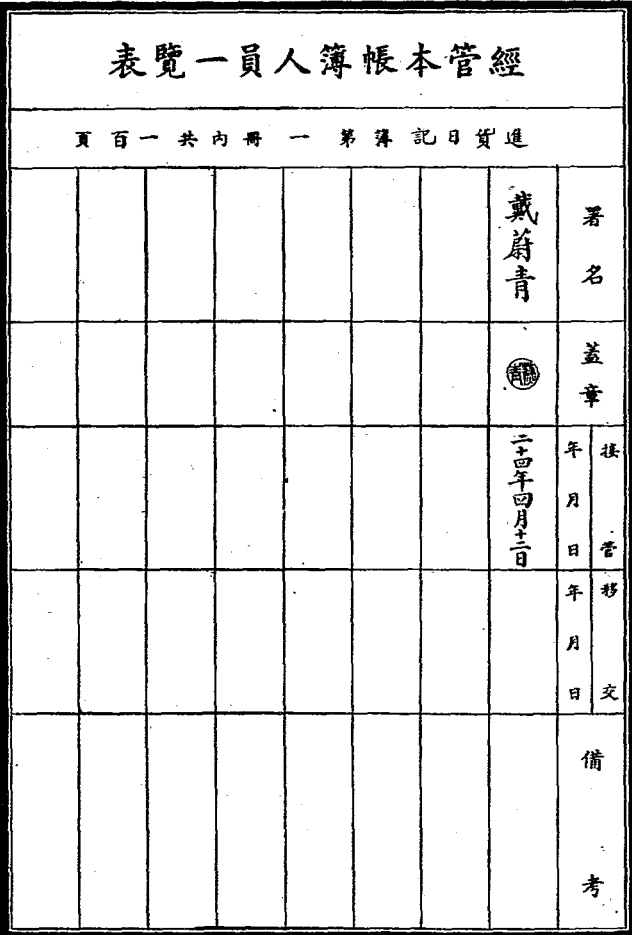 經管本帳簿人員一覽表
進貨日記簿第一冊內共一百頁
署名
戴蔚青
蓋章
接管
年月日
二十四年四月十二日
移交
年月日
備考